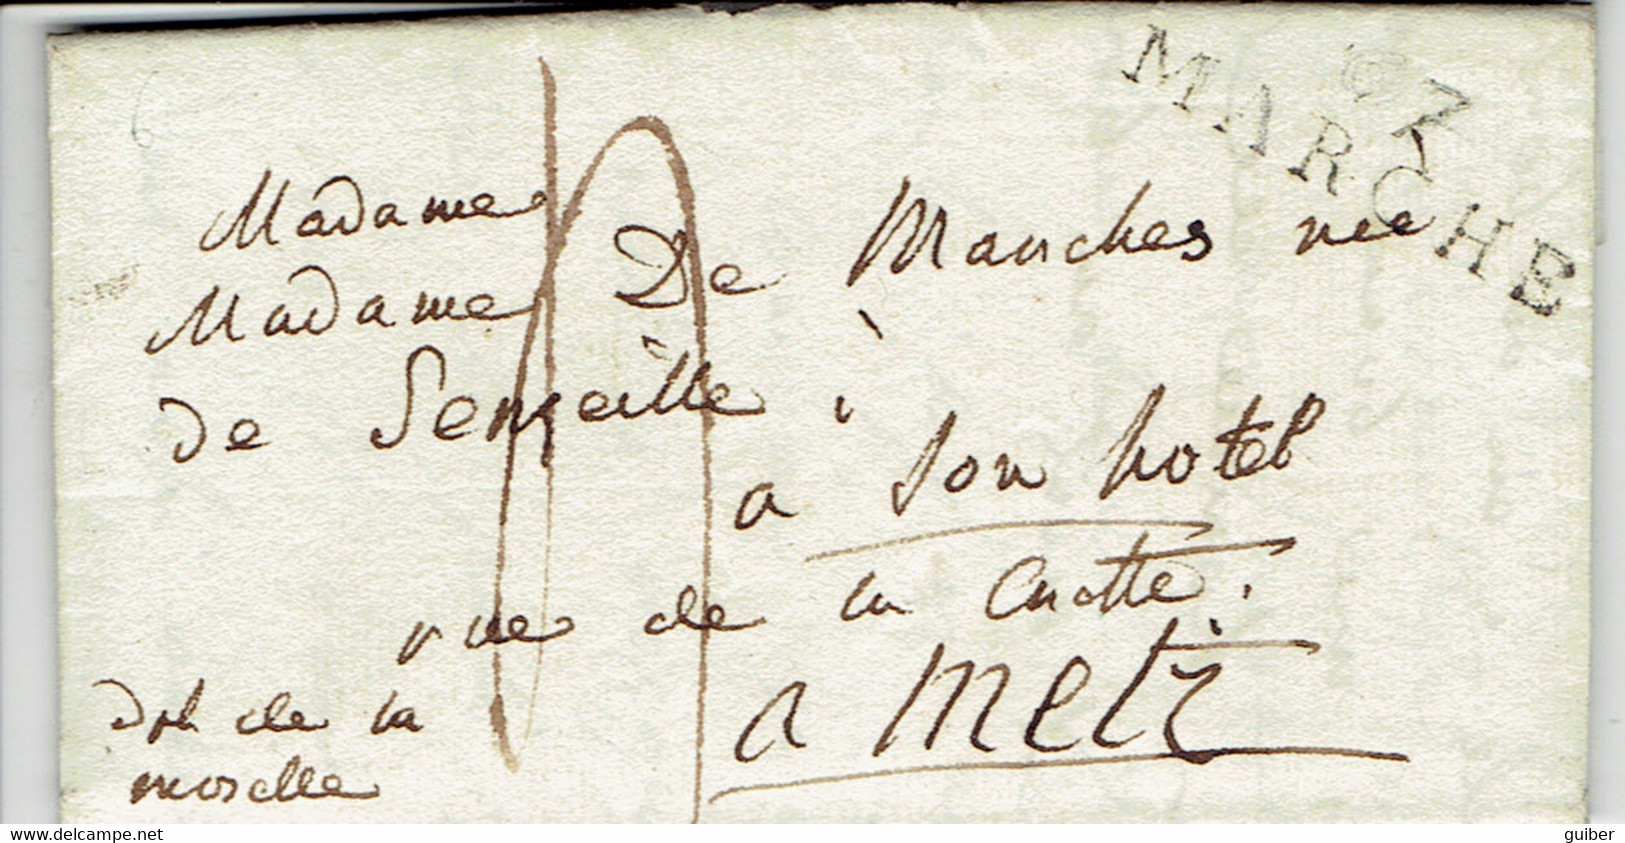 97
MARCHE
6
Madame
Madame De Manches nee
de Senseille
a son hotel
rue de la Crotte.
a Metz
dpt de la
moselle
www.delcampe.net
guiber